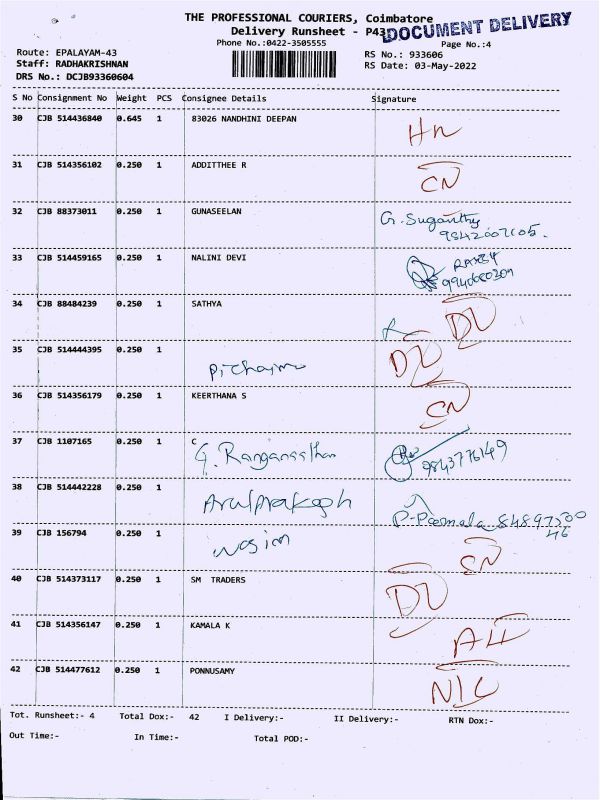 THE PROFESSIONAL COURIERS, Coimbatore
Delivery Runsheet - P43
DOCUMENT DELIVERY
Phone No.:0422-3505555
Page No.:4
Route: EPALAYAM-43
RS No.: 933606
Staff: RADHAKRISHNAN
RS Date: 03-May-2022
DRS No.: DCJB93360604
S No Consignment No Weight PCS Consignee Details Signature
30 CJB 514436840 0.645 1 83026 NANDHINI DEEPAN
31 CJB 514356102 0.250 1 ADDITTHEE R CN
32 CJB 88373011 0.250 1 GUNASEELAN G. Suganthy
33 CJB 514459165 0.250 1 NALINI DEVI
34 CJB 88484239 0.250 1 SATHYA DL
35 CJB 514444395 0.250 1 DL
36 CJB 514356179 0.250 1 KEERTHANA S CN
37 CJB 1107165 0.250 1 C G. Ranganathan 9843776149
38 CJB 514442228 0.250 1 Arulprakash
39 CJB 156794 0.250 1 Wasim
40 CJB 514373117 0.250 1 SM TRADERS DL
41 CJB 514356147 0.250 1 KAMALA K
42 CJB 514477612 0.250 1 PONNUSAMY
Tot. Runsheet:- 4 Total Dox:- 42 I Delivery:- II Delivery:- RTN Dox:-
Out Time:- In Time:- Total POD:-